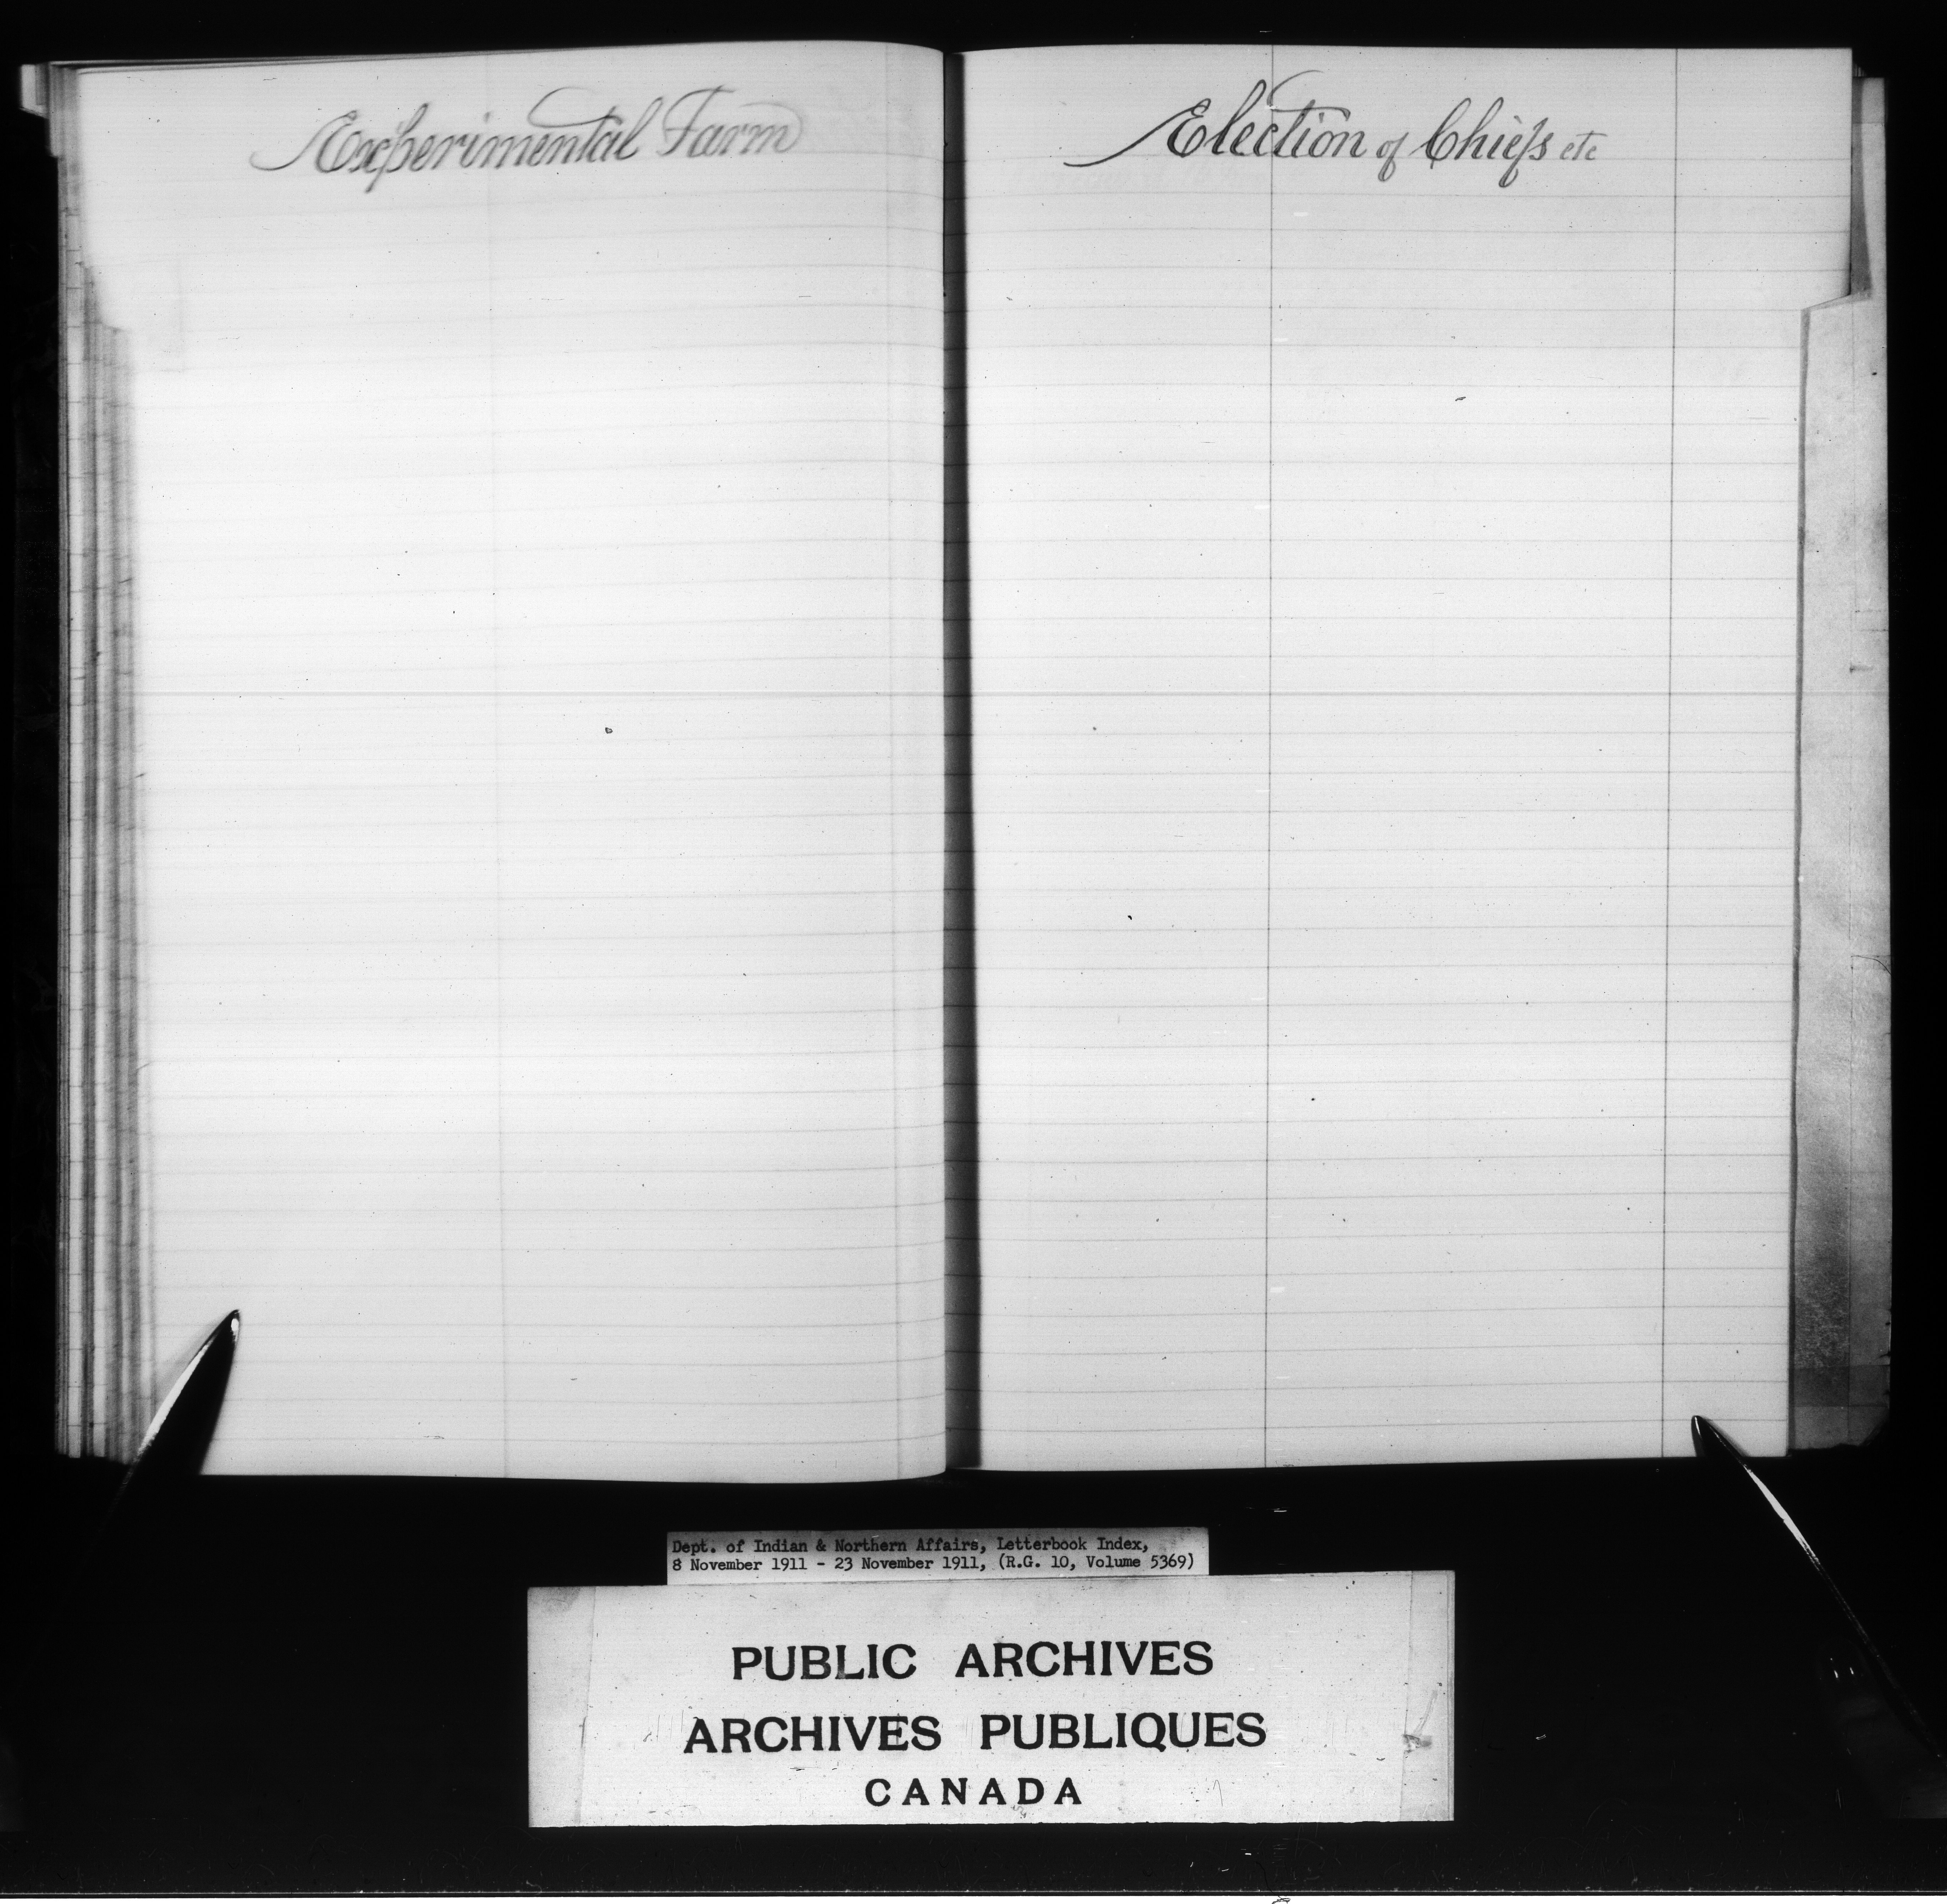 Experimental Farm
Election of Chiefs etc
Dept. of Indian & Northern Affairs, Letterbook Index,
8 November 1911 - 23 November 1911, (R.G. 10, Volume 5369)
PUBLIC ARCHIVES
ARCHIVES PUBLIQUES
CANADA